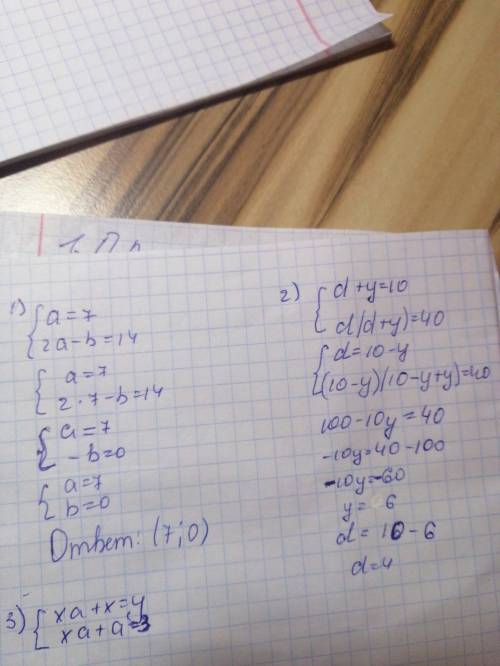 1. П
1) { a = 7
2a - b = 14
{ a = 7
2 · 7 - b = 14
{ a = 7
- b = 0
{ a = 7
b = 0
Ответ: (7; 0)
2) { d + y = 10
d(d + y) = 40
{ d = 10 - y
(10 - y)(10 - y + y) = 40
100 - 10y = 40
-10y = 40 - 100
-10y = -60
y = 6
d = 10 - 6
d = 4
3) { xa + x = y
xa + a = 3